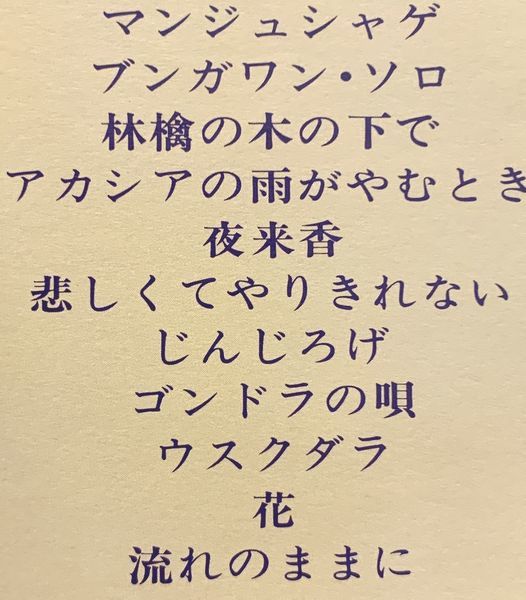 マンジュシャゲ
ブンガワン・ソロ
林檎の木の下で
アカシアの雨がやむとき
夜来香
悲しくてやりきれない
じんじろげ
ゴンドラの唄
ウスクダラ
花
流れのままに